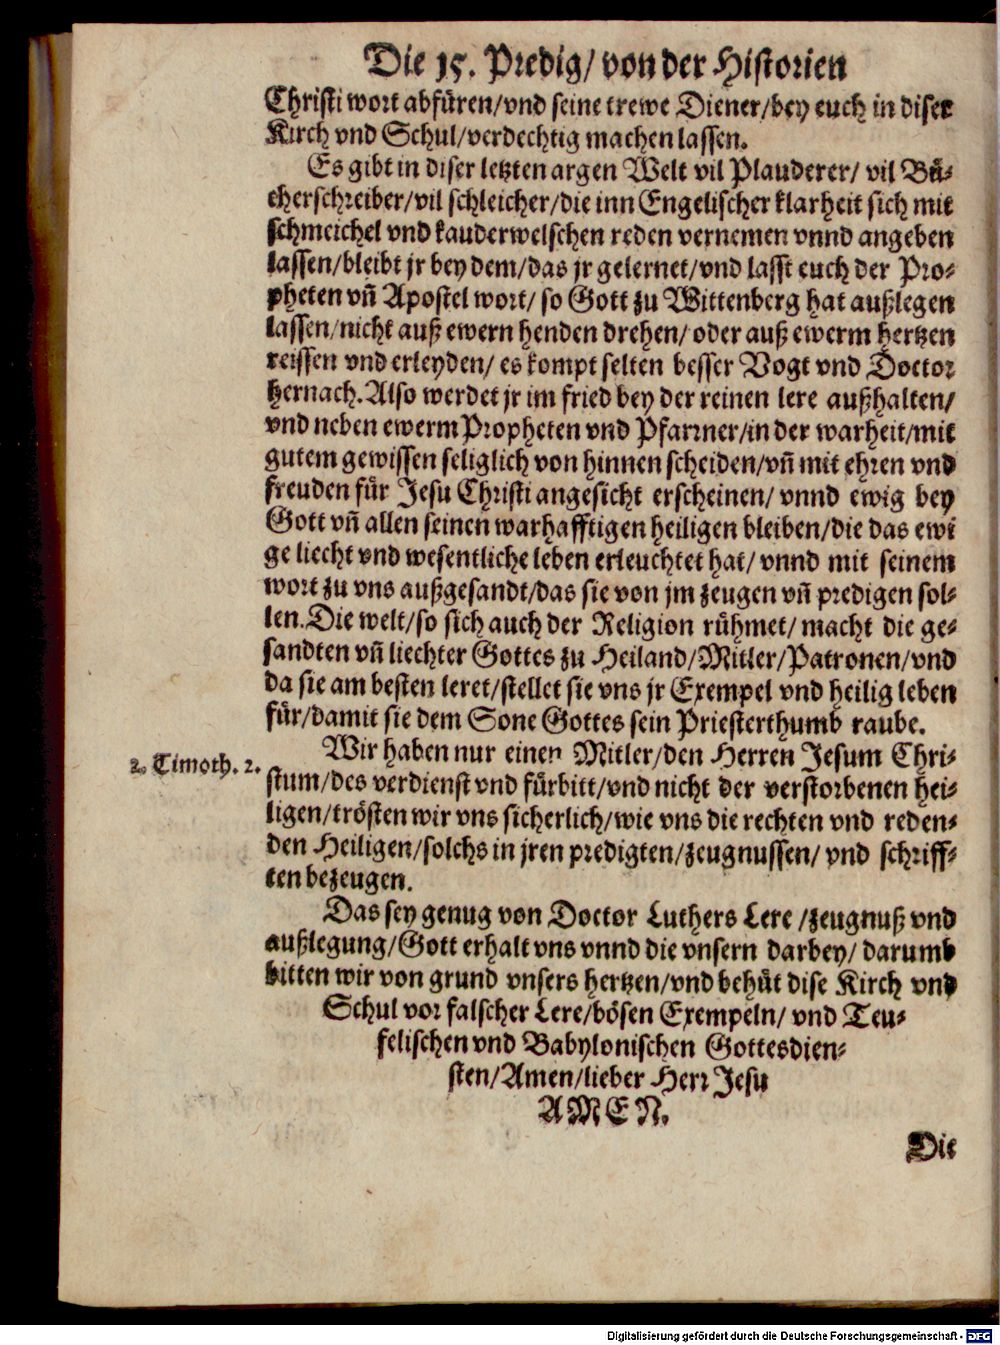 Die 15. Predig/ von der Historien
Christi wort abfüren/vnd seine trewe Diener/bey euch in diser
Kirch vnd Schul/verdechtig machen lassen.
Es gibt in diser letzten argen Welt vil Plauderer/ vil Bü-
cherschreiber/vil schleicher/die inn Engelischer klarheit sich mit
schmeichel vnd kauderwelschen reden vernemen vnnd angeben
lassen/bleibt jr bey dem/das jr gelernet/vnd lasst euch der Pro-
pheten vñ Apostel wort/ so Gott zu Wittenberg hat außlegen
lassen/nicht auß ewern henden drehen/ oder auß ewerm hertzen
reissen vnd erleyden/ es kompt selten besser Vogt vnd Doctor
hernach. Also werdet jr im fried bey der reinen lere außhalten/
vnd neben ewerm Propheten vnd Pfarrner/in der warheit/mit
gutem gewissen seliglich von hinnen scheiden/vñ mit ehren vnd
freuden für Jesu Christi angesicht erscheinen/ vnnd ewig bey
Gott vñ allen seinen warhafftigen heiligen bleiben/die das ewi
ge liecht vnd wesentliche leben erleuchtet hat/ vnnd mit seinem
wort zu vns außgesandt/das sie von jm zeugen vñ predigen sol-
len. Die welt/so sich auch der Religion rühmet/ macht die ge-
sandten vñ liechter Gottes zu Heiland/Mitler/Patronen/vnd
da sie am besten leret/stellet sie vns jr Exempel vnd heilig leben
für/damit sie dem Sone Gottes sein Priesterthumb raube.
Wir haben nur einen Mitler/den Herren Jesum Chri-
2. Timoth. 2.
stum/des verdienst vnd fürbitt/vnd nicht der verstorbenen hei-
ligen/trösten wir vns sicherlich/wie vns die rechten vnd reden-
den Heiligen/solchs in jren predigten/zeugnussen/ vnd schriff-
ten bezeugen.
Das sey genug von Doctor Luthers Lere /zeugnuß vnd
außlegung/Gott erhalt vns vnnd die vnsern darbey/ darumb
bitten wir von grund vnsers hertzen/vnd behüt dise Kirch vnd
Schul vor falscher Lere/bösen Exempeln/ vnd Teu-
felischen vnd Babylonischen Gottesdien-
sten/Amen/lieber Herr Jesu
AMEN.
Die
Digitalisierung gefördert durch die Deutsche Forschungsgemeinschaft - DFG